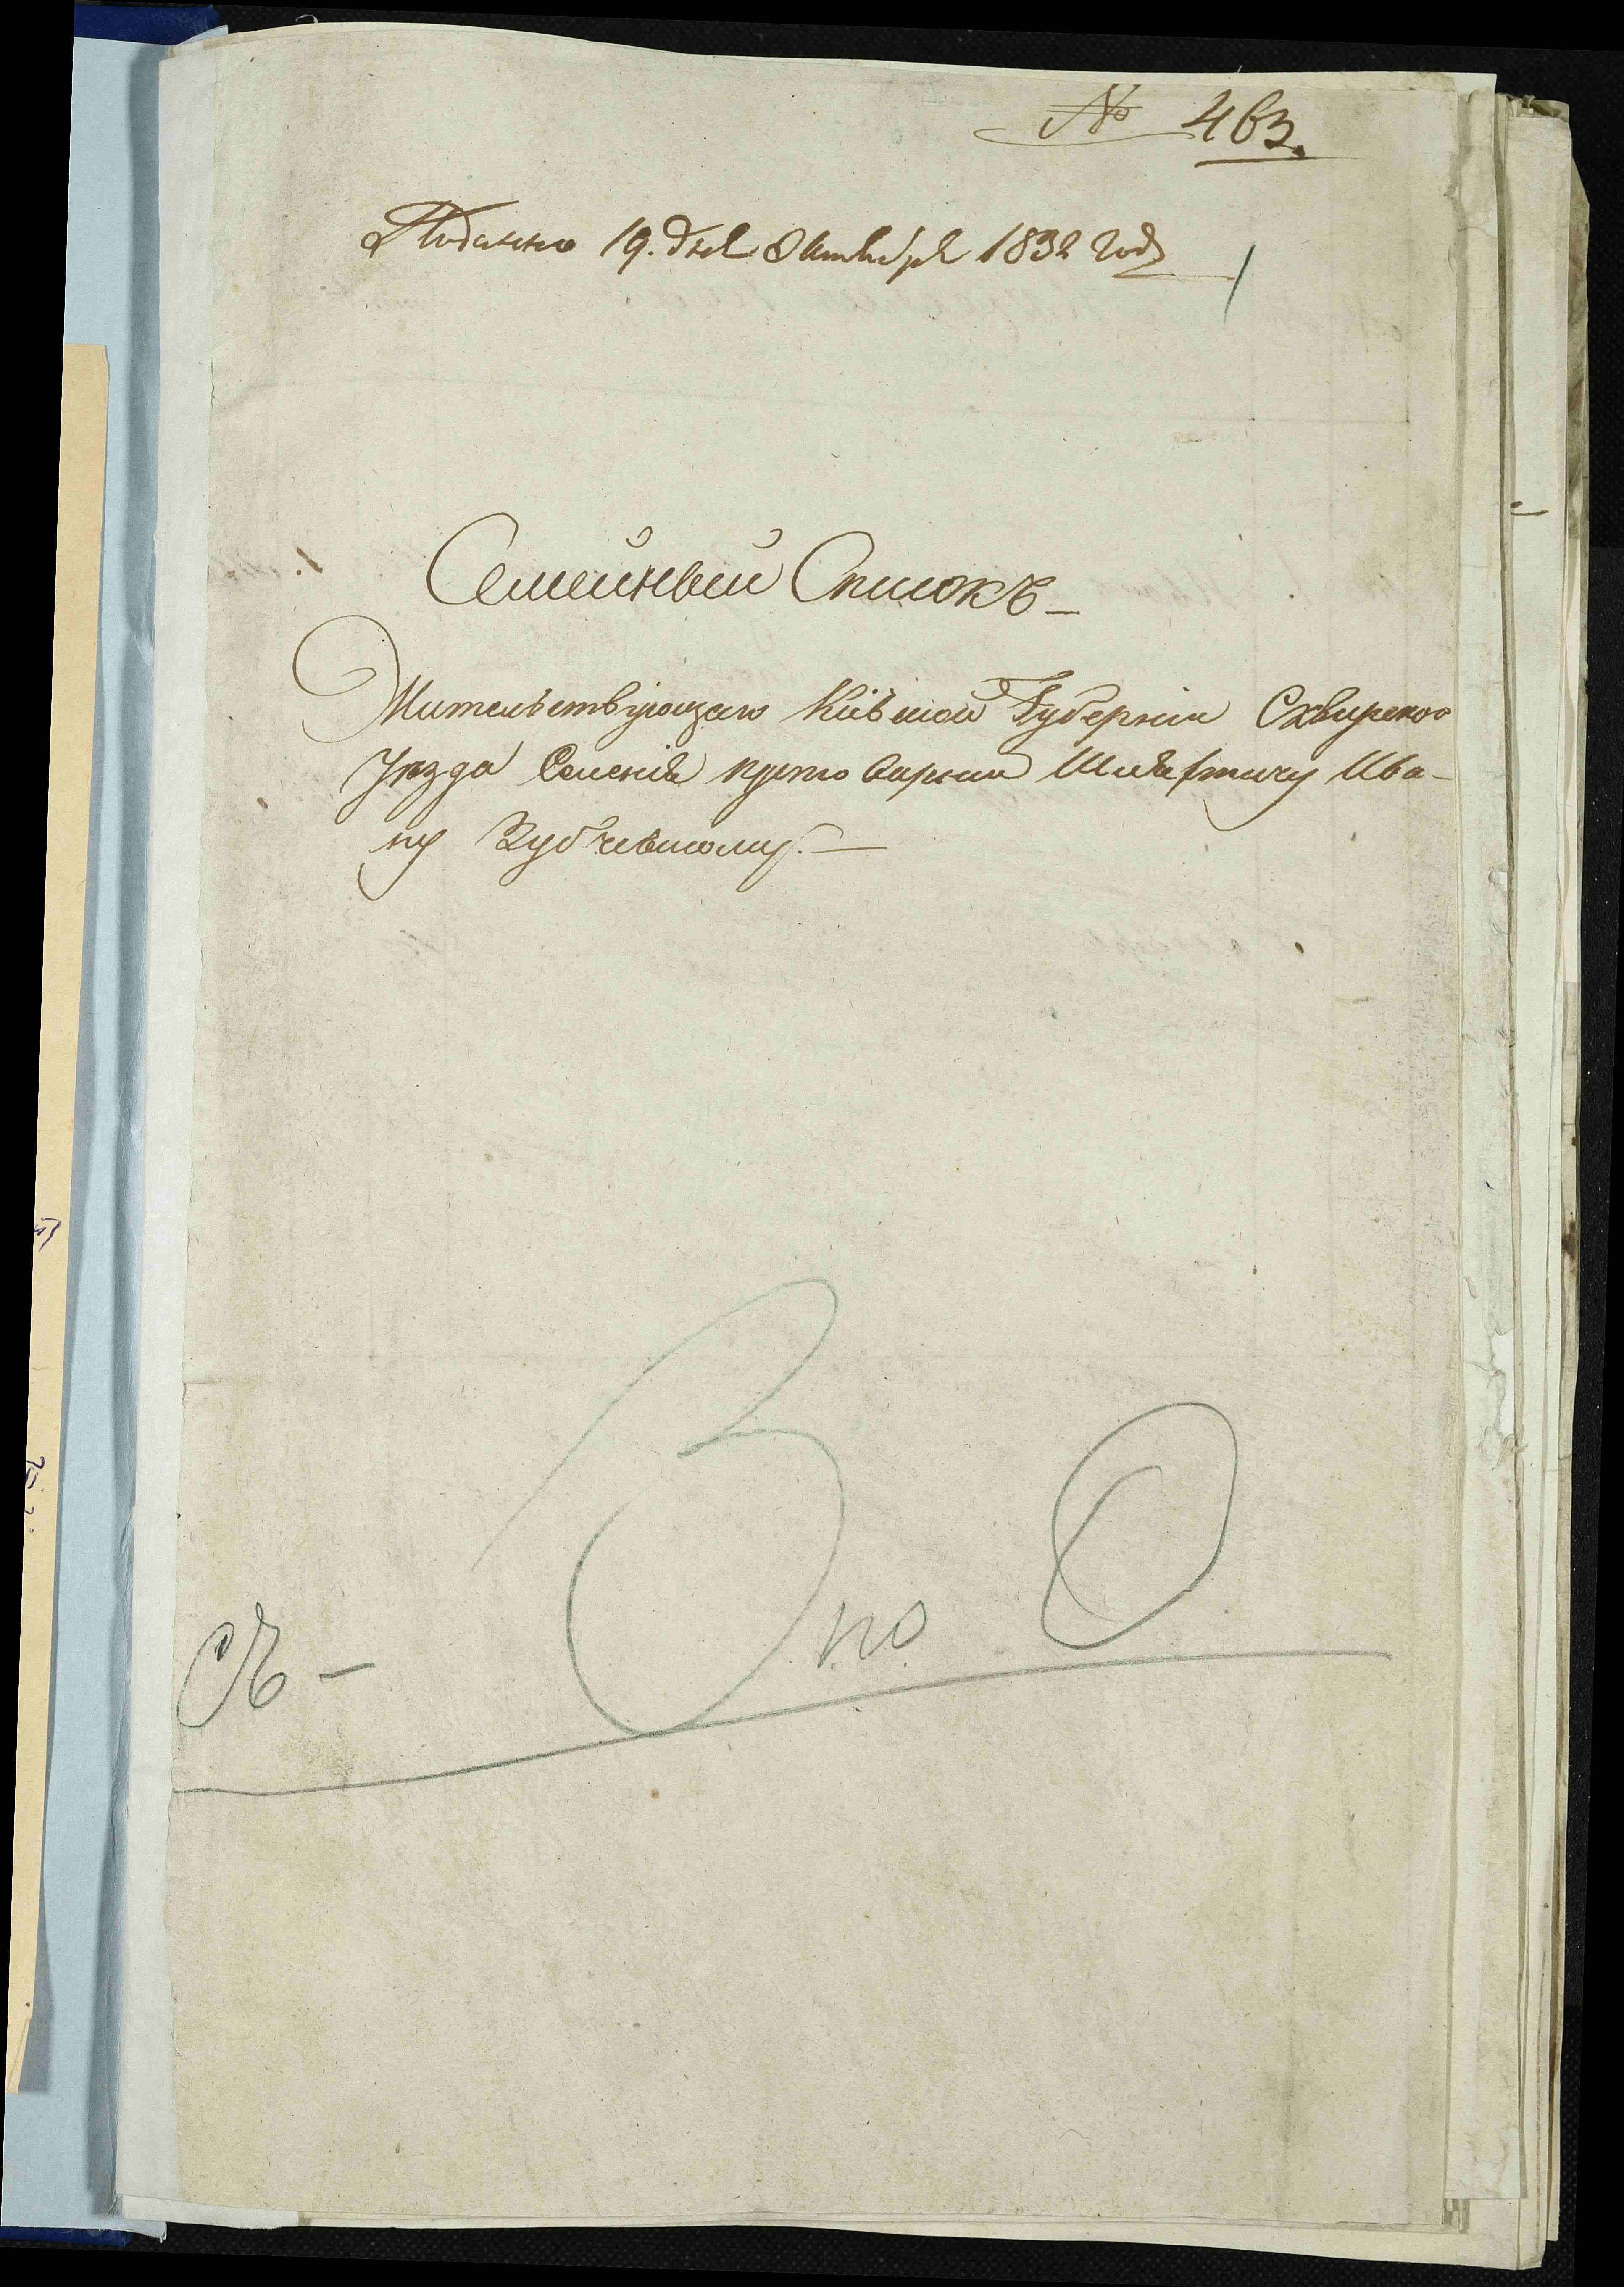 № 463.
Поданно 19. дня Октября 1832 года
1
Семейный Списокъ
Жительствующаго Кіевской Губерніи Сквирского
Уезда Селенія пустоварни Шляхтичу Ива-
ну Зубчевскому.
съ - В по О